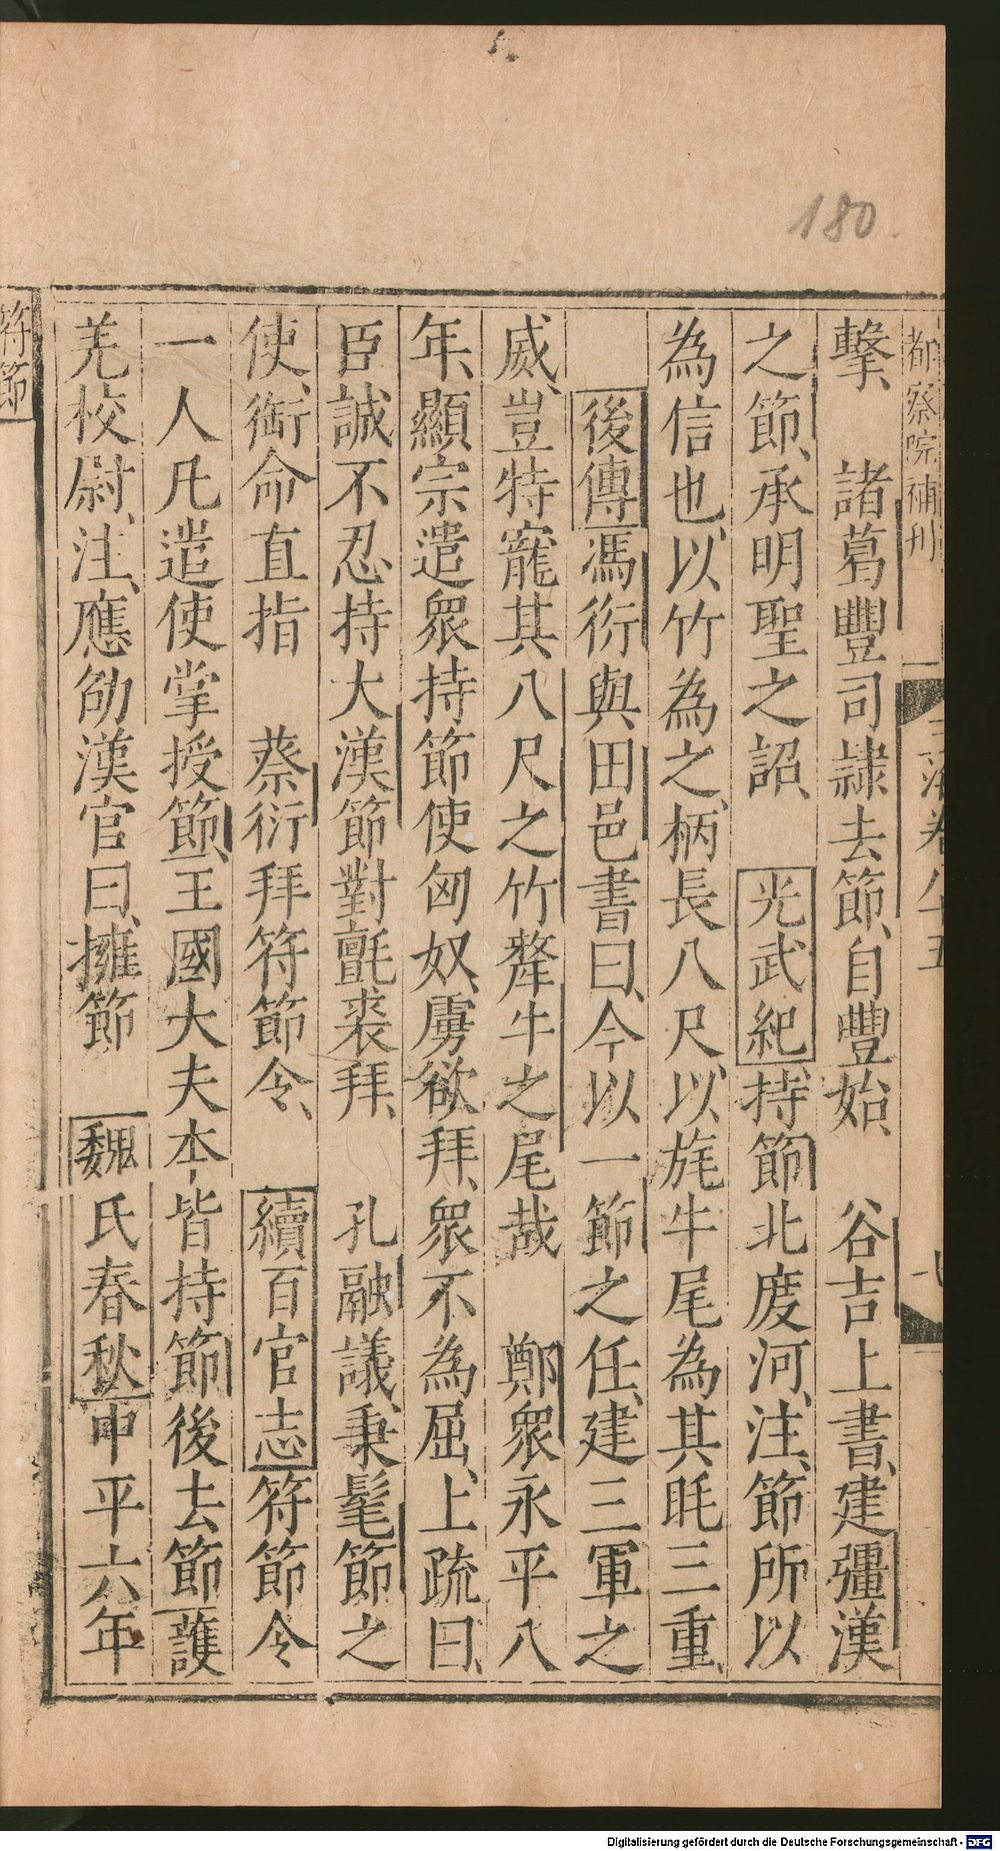 180.
都察院補刊
玉海卷八十五
七
擊、諸葛豐司隷去節、自豐始、谷吉上書、建彊漢
之節、承明聖之詔、光武紀、持節北度河、注、節所以
為信也、以竹為之、柄長八尺、以旄牛尾為其眊三重、
後傳馮衍與田邑書曰、今以一節之任、建三軍之
威、豈特寵其八尺之竹、犛牛之尾哉 鄭衆永平八
年、顯宗遣衆持節使匈奴、虜欲拜、衆不為屈、上疏曰、
臣誠不忍持大漢節對氈裘拜、孔融議、秉髦節之
使、銜命直指 蔡衍拜符節令、續百官志符節令
一人凡遣使掌授節、王國大夫本皆持節後去節護
羌校尉、注、應劭漢官曰、擁節 魏氏春秋中平六年
符節
Digitalisierung gefördert durch die Deutsche Forschungsgemeinschaft - DFG